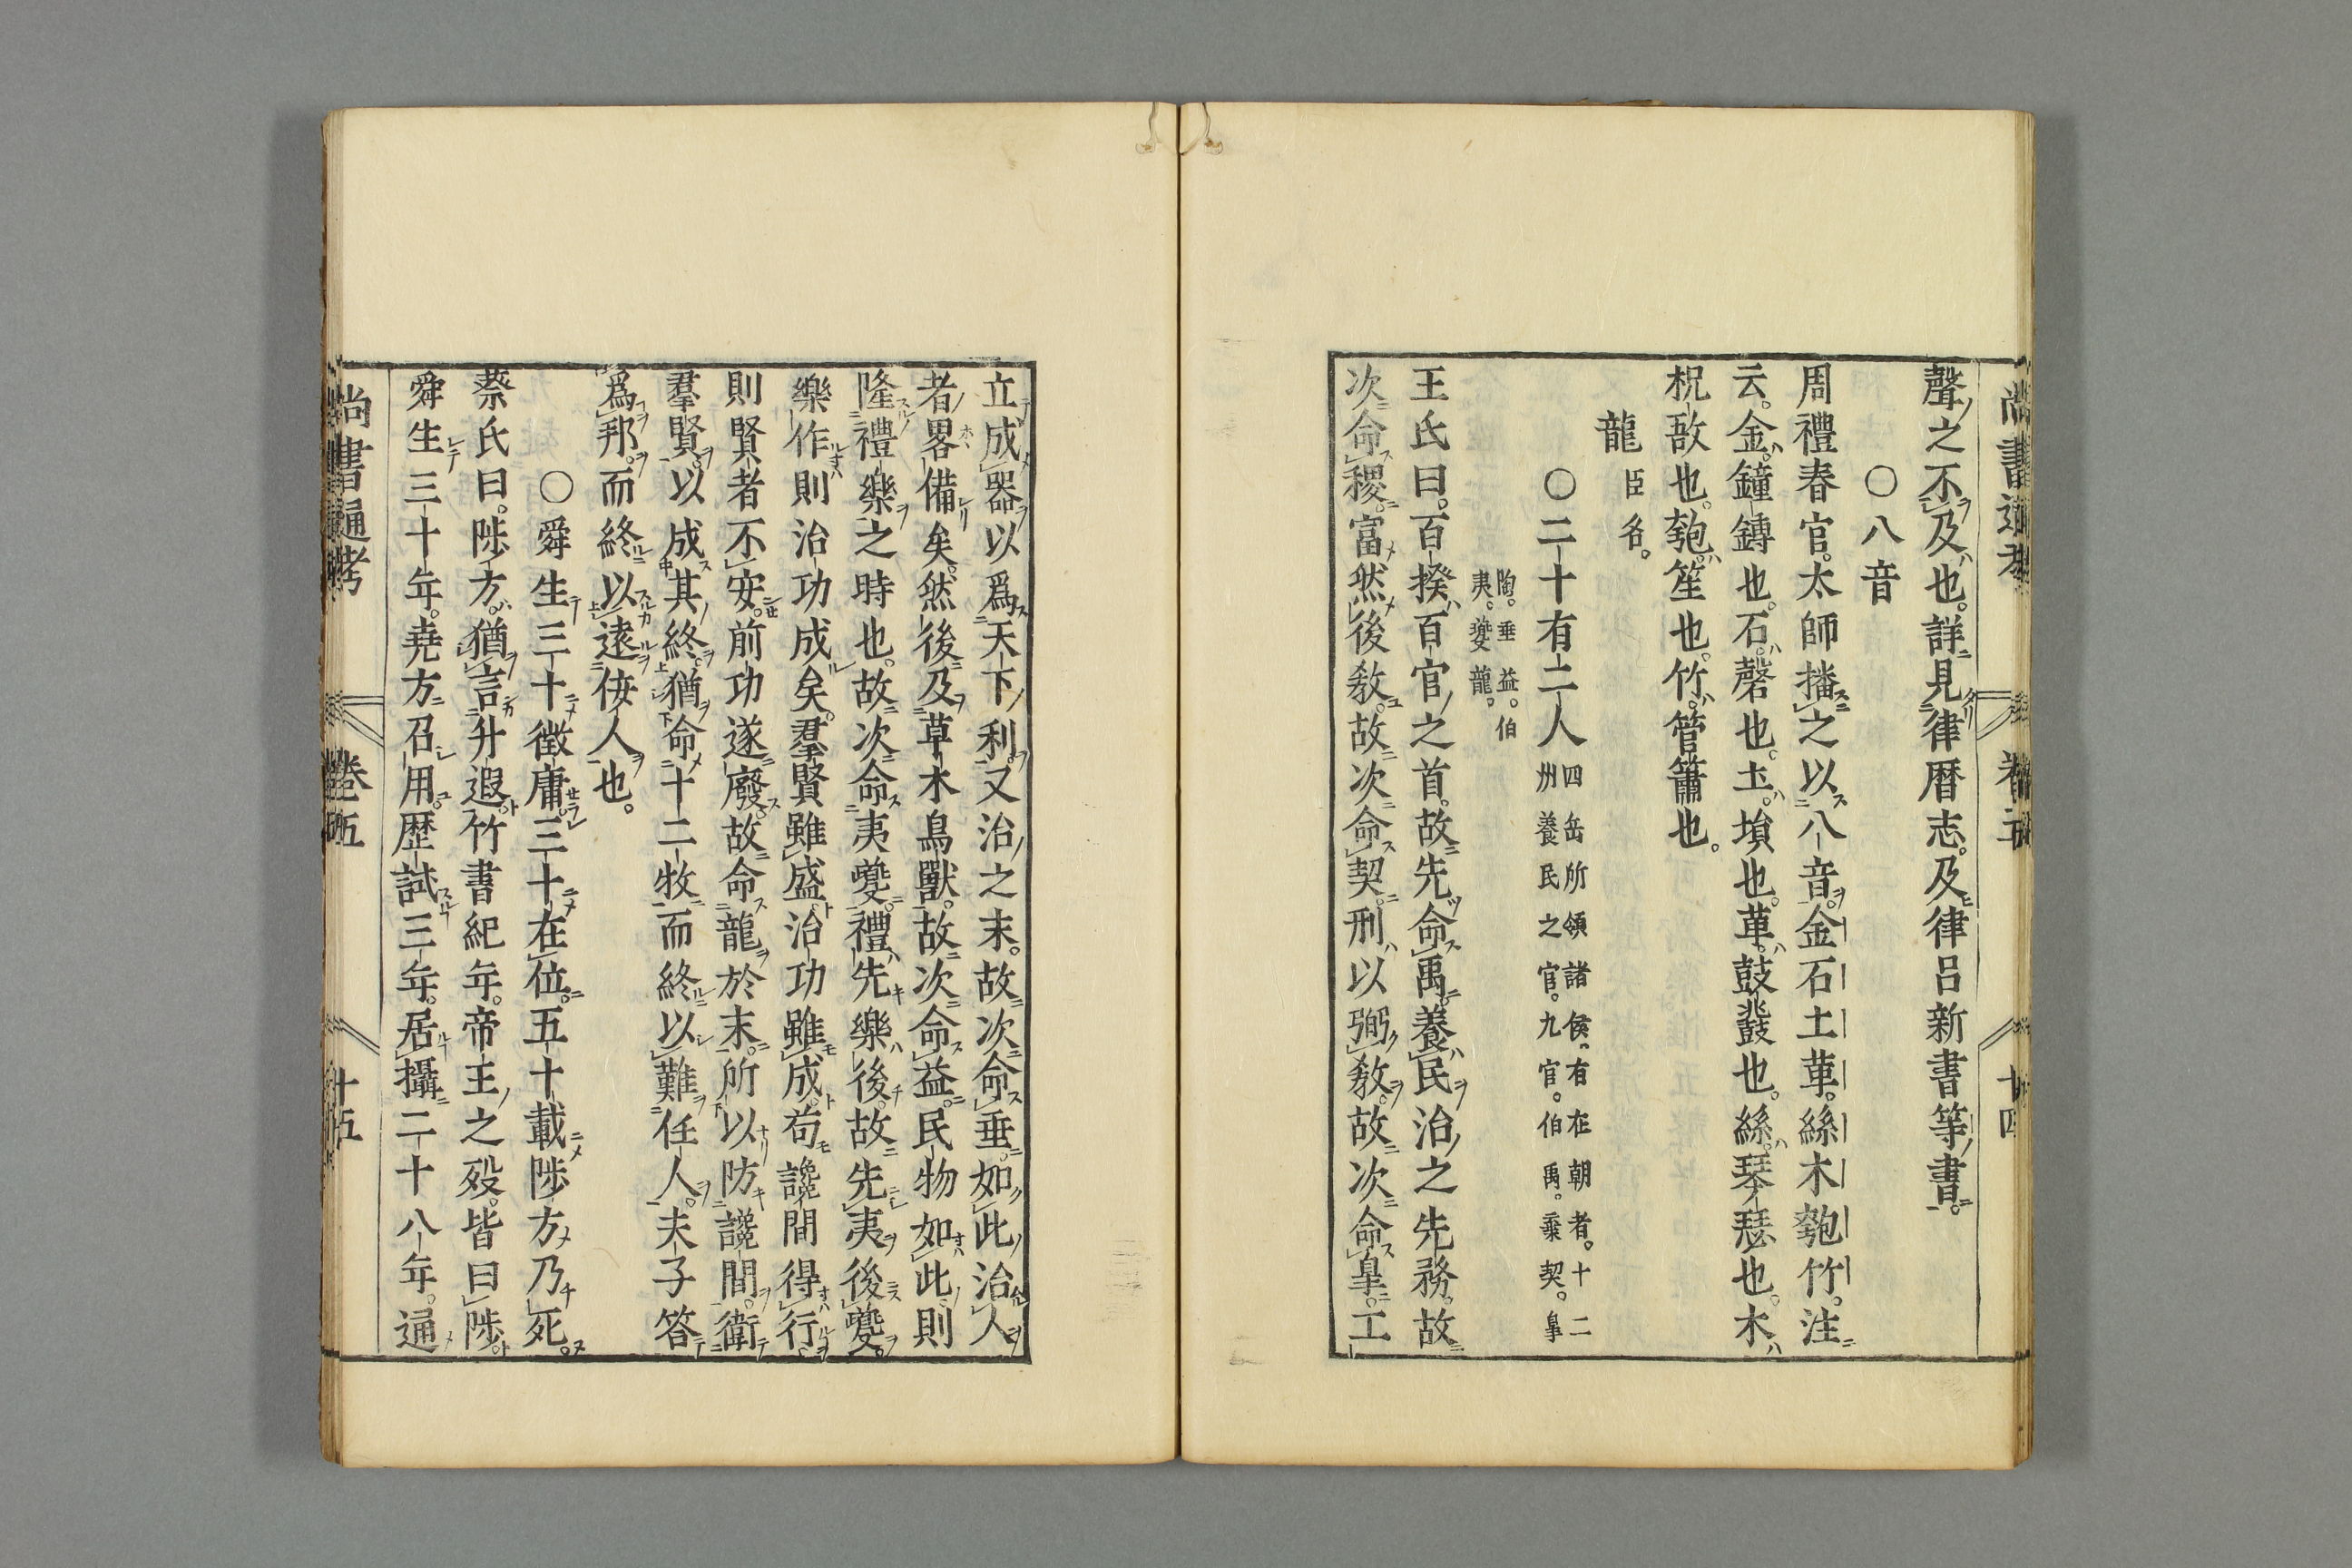 聲之不及也。詳見律曆志。及律呂新書等書。
○八音
周禮春官。太師播之以八音。金石土革。絲木匏竹。注
云。金。鐘鎛也。石。磬也。土。塤也。革。鼓鼗也。絲。琴瑟也。木。
柷敔也。匏。笙也。竹。管簫也。
龍 臣名。
○二十有二人 四岳所領諸侯。有在朝者。十二
州養民之官。九官。伯禹。棄。契。皐
陶。垂益。伯
夷。夔龍。
王氏曰。百揆百官之首。故先命禹。養民治之先務。故
次命稷。富然後敎。故次命契。刑以弼敎。故次命皐。工
立成器以爲天下利。又治之末。故次命垂。如此治人
者畧備矣。然後及草木鳥獸。故次命益。民物如此則
隆禮樂之時也。故次命夷夔。禮先樂後。故先夷後夔。
樂作則治功成矣。羣賢雖盛治功雖成。苟讒間得行。
則賢者不安。前功遂廢。故命龍於末。所以防讒間。衛
羣賢。以成其終。猶命十二牧而終以難任人。夫子答
爲邦。而終以遠佞人也。
○舜生三十徵庸。三十在位。五十載陟方乃死。
蔡氏曰。陟方。猶言升遐。竹書紀年。帝王之歿。皆曰陟。
舜生三十年。堯方召用。歴試三年。居攝二十八年。通
尚書通考 卷五 十五